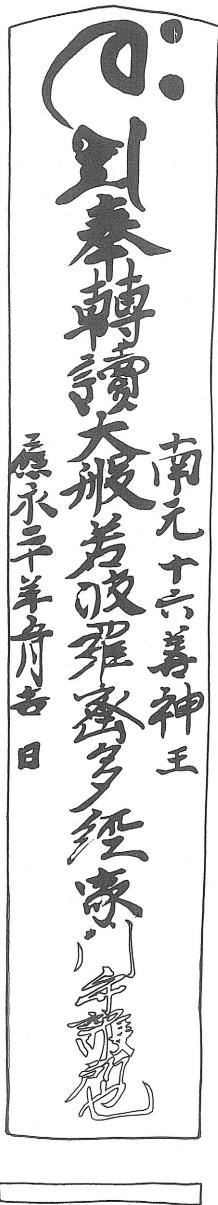 南无十六善神王
奉轉讀大般若波羅蜜多經家門守護
應永二十年五月吉日